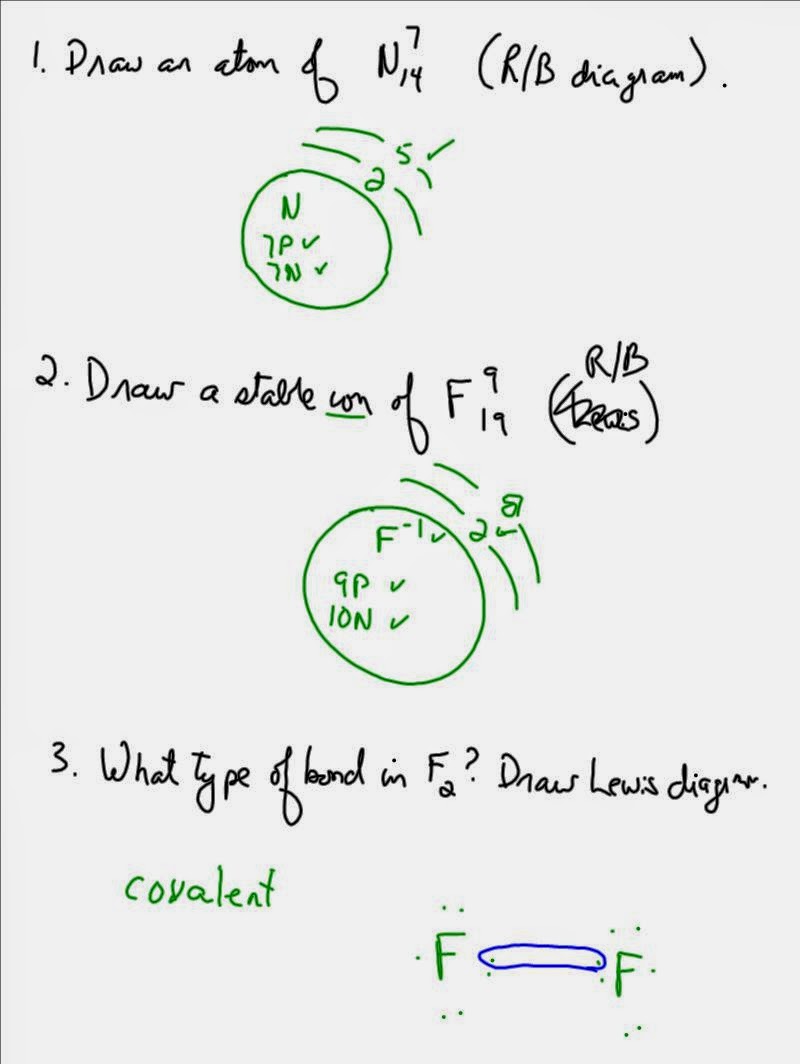 1. Draw an atom of N 7 14 (R/B diagram).
5 ✓
2
N
7P ✓
7N ✓
2. Draw a stable ion of F 9 19 (R/B
F⁻¹ ✓ 2 ✓ 8
9P ✓
10N ✓
3. What type of bond in F₂? Draw Lewis diagram.
covalent
F F